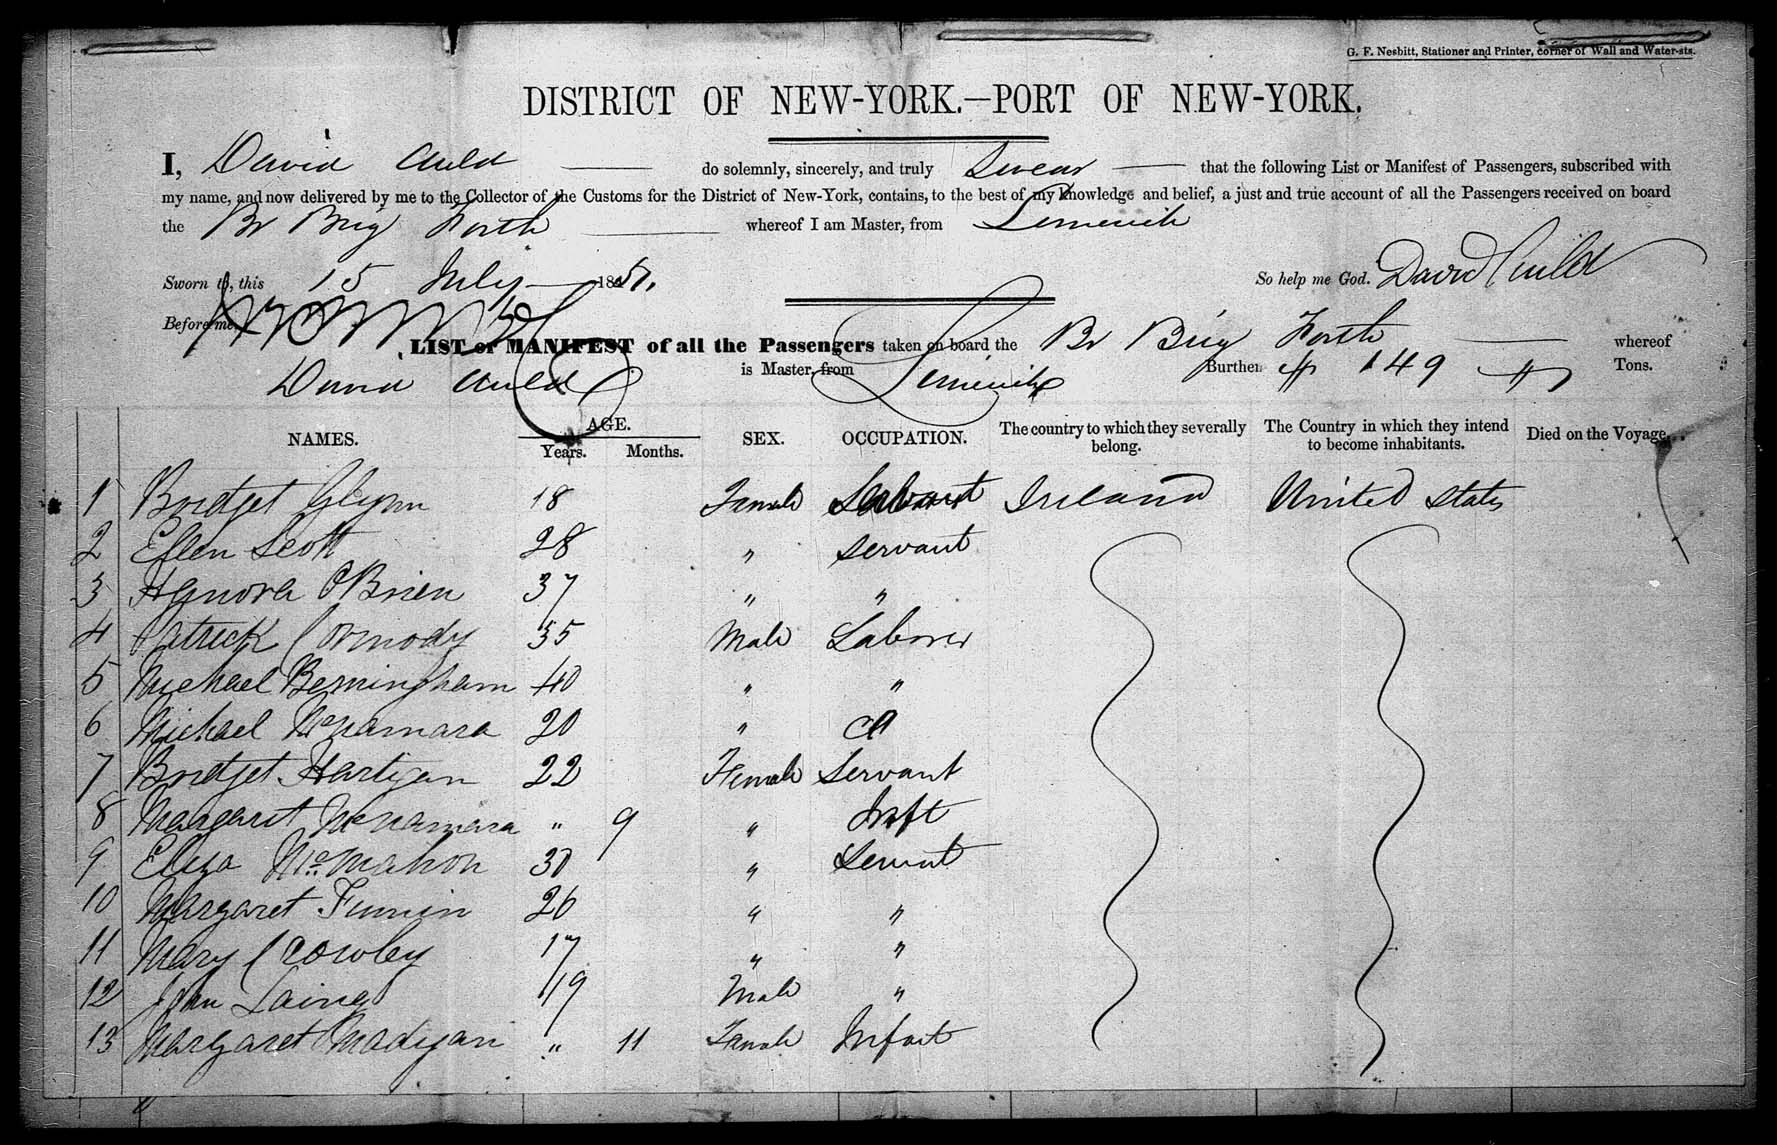 G. F. Nesbitt, Stationer and Printer, corner of Wall and Water-sts.
DISTRICT OF NEW-YORK.—PORT OF NEW-YORK.
I, David Auld do solemnly, sincerely, and truly Swear that the following List or Manifest of Passengers, subscribed with
my name, and now delivered by me to the Collector of the Customs for the District of New-York, contains, to the best of my knowledge and belief, a just and true account of all the Passengers received on board
the Br Brig Forth whereof I am Master, from Limerick
Sworn to, this 15 July 1851. So help me God. David Auld
Before me,
LIST or MANIFEST of all the Passengers taken on board the Br Brig Forth whereof
David Auld is Master, from Limerick Burthen 149 Tons.
NAMES. AGE. SEX. OCCUPATION. The country to which they severally belong. The Country in which they intend to become inhabitants. Died on the Voyage.
Years. Months.
1 Bridget Glynn 18 Female Servant Ireland United States
2 Ellen Scott 28 " servant
3 Honora O'Brien 37 " "
4 Patrick Cormody 35 Male Laborer
5 Michael Bermingham 40 " "
6 Michael McNamara 20 "
7 Bridget Hartigan 22 Female Servant
8 Margaret McNamara " 9 " Inft
9 Eliza McMahon 30 " Servant
10 Margaret 26 " "
11 Mary Crowley 17 " "
12 John Laing 19 Male "
13 Margaret Madigan " 11 Female Infant